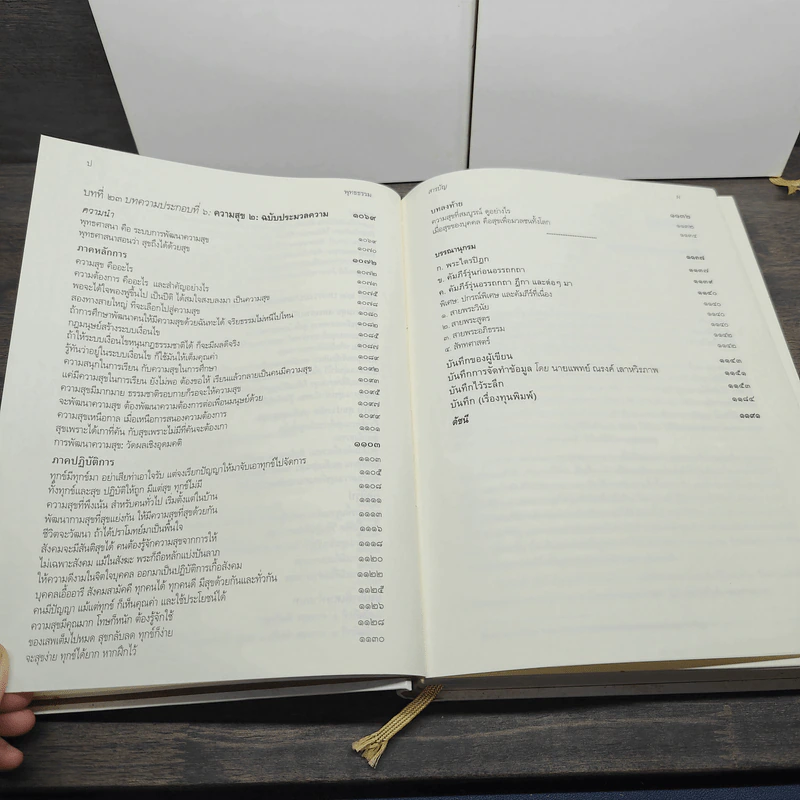 ป
พุทธธรรม
บทที่ ๒๓ บทความประกอบที่ ๖: ความสุข ๒: ฉบับประมวลความ ๑๐๖๙
ความนำ
พุทธศาสนา คือ ระบบการพัฒนาความสุข ๑๐๖๙
พุทธศาสนาสอนว่า สุขถึงได้ด้วยสุข ๑๐๗๐
ภาคหลักการ ๑๐๗๒
ความสุข คืออะไร ๑๐๗๒
ความต้องการ คืออะไร และสำคัญอย่างไร ๑๐๗๓
พอจะได้ใจพองฟูขึ้นไป เป็นปีติ ได้สมใจสงบลงมา เป็นความสุข ๑๐๗๕
สองทางสายใหญ่ ที่จะเลือกไปสู่ความสุข ๑๐๗๘
ถ้าการศึกษาพัฒนาคนให้มีความสุขด้วยฉันทะได้ จริยธรรมไม่หนีไปไหน ๑๐๘๐
กฎมนุษย์สร้างระบบเงื่อนไข ๑๐๘๒
ถ้าให้ระบบเงื่อนไขหนุนกฎธรรมชาติได้ ก็จะมีผลดีจริง ๑๐๘๗
รู้ทันว่าอยู่ในระบบเงื่อนไข ก็ใช้มันให้เต็มคุณค่า ๑๐๘๙
ความสนุกในการเรียน กับความสุขในการศึกษา ๑๐๙๒
แค่มีความสุขในการเรียน ยังไม่พอ ต้องขอให้ เรียนแล้วกลายเป็นคนมีความสุข ๑๐๙๓
ความสุขมีมากมาย ธรรมชาติรอบกายก็รอจะให้ความสุข ๑๐๙๕
จะพัฒนาความสุข ต้องพัฒนาความต้องการต่อเพื่อนมนุษย์ด้วย ๑๐๙๗
ความสุขเหนือกาล เมื่อเหนือการสนองความต้องการ ๑๐๙๙
สุขเพราะได้เกาที่คัน กับสุขเพราะไม่มีที่คันจะต้องเกา ๑๑๐๑
การพัฒนาความสุข: วัดผลเชิงอุดมคติ ๑๑๐๓
ภาคปฏิบัติการ ๑๑๐๓
ทุกข์มีทุกข์มา อย่าเสียท่าเอาใจรับ แต่จงเรียกปัญญาให้มาจับเอาทุกข์ไปจัดการ ๑๑๐๕
ทั้งทุกข์และสุข ปฏิบัติให้ถูก มีแต่สุข ทุกข์ไม่มี ๑๑๐๘
ความสุขที่พึงเน้น สำหรับคนทั่วไป เริ่มตั้งแต่ในบ้าน ๑๑๑๑
พัฒนากามสุขที่สุขแย่งกัน ให้มีความสุขที่สุขด้วยกัน ๑๑๑๓
ชีวิตจะวัฒนา ถ้าได้ปราโมทย์มาเป็นพื้นใจ ๑๑๑๖
สังคมจะมีสันติสุขได้ คนต้องรู้จักความสุขจากการให้ ๑๑๑๘
ไม่เฉพาะสังคม แม้ในสังฆะ พระก็ถือหลักแบ่งปันลาภ ๑๑๒๐
ให้ความดีงามในจิตใจบุคคล ออกมาเป็นปฏิบัติการเกื้อสังคม ๑๑๒๒
บุคคลเอื้ออารี สังคมสามัคคี ทุกคนได้ ทุกคนดี มีสุขด้วยกันและทั่วกัน ๑๑๒๕
คนมีปัญญา แม้แต่ทุกข์ ก็เห็นคุณค่า และใช้ประโยชน์ได้ ๑๑๒๖
ความสุขมีคุณมาก โทษก็หนัก ต้องรู้จักใช้ ๑๑๒๘
ของเสพเต็มไปหมด สุขกลับลด ทุกข์ก็ง่าย ๑๑๓๐
จะสุขง่าย ทุกข์ได้ยาก หากฝึกไว้
สารบัญ
บทลงท้าย
ความสุขที่สมบูรณ์ ดูอย่างไร ๑๑๓๒
เมื่อสุขของบุคคล คือสุขเพื่อมวลชนทั้งโลก
บรรณานุกรม ๑๑๓๗
ก. พระไตรปิฎก
ข. คัมภีร์รุ่นก่อนอรรถกถา ๑๑๓๗
ค. คัมภีร์รุ่นอรรถกถา ฎีกา และต่อๆ มา ๑๑๓๙
พิเศษ: ปกรณ์พิเศษ และคัมภีร์ที่เนื่อง ๑๑๔๐
๑. สายพระวินัย ๑๑๔๐
๒. สายพระสูตร ๑๑๔๐
๓. สายพระอภิธรรม ๑๑๔๒
๔. สัททศาสตร์ ๑๑๔๒
บันทึกของผู้เขียน ๑๑๔๓
บันทึกการจัดทำข้อมูล โดย นายแพทย์ ณรงค์ เลาหวิรภาพ
บันทึกไว้ระลึก ๑๑๕๓
บันทึก (เรื่องทุนพิมพ์) ๑๑๘๔
ดัชนี ๑๑๙๑